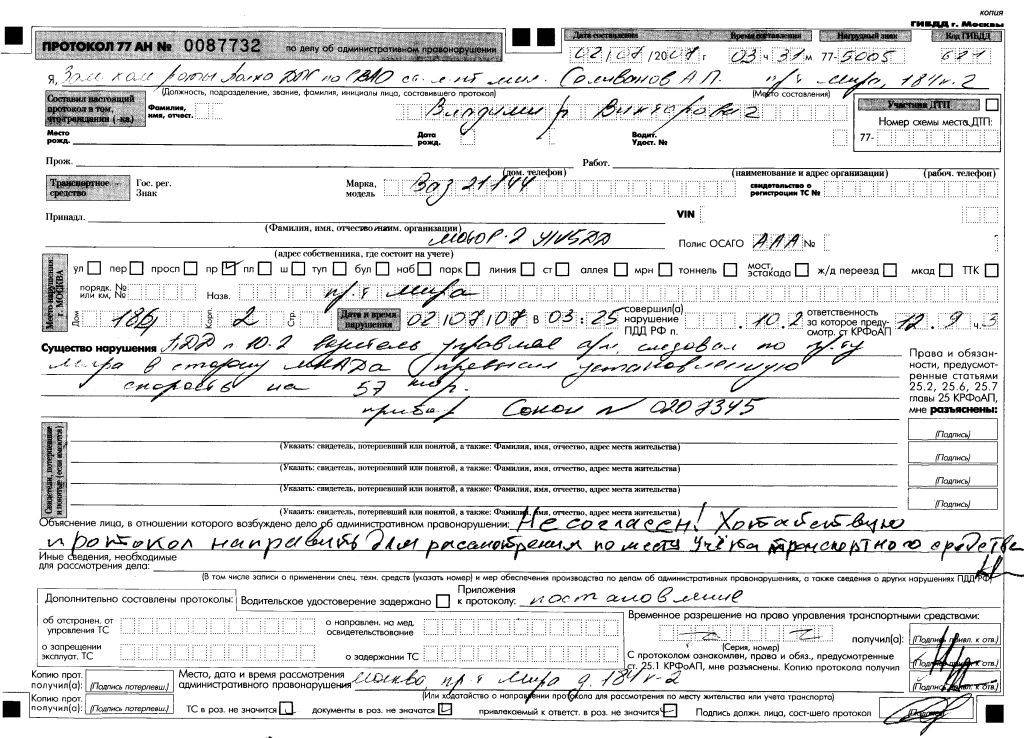 копия
ГИБДД г. Москвы
ПРОТОКОЛ 77 АН № 0087732 по делу об административном правонарушении
Дата составления Время составления Нагрудный знак Код ГИБДД
02/07/2007 г 03 ч 31 м 77-5005 681
Я, Зам ком роты полка ДПС по СВАО ст. л-нт мил. Селиванов А.П. пр-т Мира, 184 к. 2
(Должность, подразделение, звание, фамилия, инициалы лица, составившего протокол) (Место составления)
Составил настоящий протокол в том, что гражданин (-ка) Фамилия, имя, отчест. Владимир Викторович
Участник ДТП
Номер схемы места ДТП:
77-
Место рожд. Дата рожд. Водит. Удост. №
Прож. Работ.
(дом. телефон) (наименование и адрес организации) (рабоч. телефон)
Транспортное средство Гос. рег. Знак Марка, модель Ваз 21144 свидетельство о регистрации ТС №
Принадл. VIN
(Фамилия, имя, отчество/наим. организации)
Полис ОСАГО ААА №
(адрес собственника, где состоит на учете)
Место нарушения г. МОСКВА
ул пер просп пр пл ш туп бул наб парк линия ст аллея мрн тоннель мост, эстакада ж/д переезд мкад ТТК
порядк. № или км, № Назв. пр-т Мира
Дом Корп. 2 Стр. Дата и время нарушения 02/07/07 В 03:25 совершил(а) нарушение ПДД РФ п. 10.2 ответственность за которое предусмотр. ст КРФоАП 12.9 ч.3
Существо нарушения ПДД п 10.2 водитель управляя а/м, следовал по пр-ту
Мира в сторону МКАДа превысил установленную
скорость на 57 км/ч.
прибор Сокол N 0207345
Права и обязанности, предусмотренные статьями 25.2, 25.6, 25.7 главы 25 КРФоАП, мне разъяснены:
(Подпись)
Свидетели, потерпевшие и понятые (если имеются)
(Указать: свидетель, потерпевший или понятой, а также: Фамилия, имя, отчество, адрес места жительства)
(Подпись)
(Указать: свидетель, потерпевший или понятой, а также: Фамилия, имя, отчество, адрес места жительства)
(Подпись)
(Указать: свидетель, потерпевший или понятой, а также: Фамилия, имя, отчество, адрес места жительства)
(Подпись)
(Указать: свидетель, потерпевший или понятой, а также: Фамилия, имя, отчество, адрес места жительства)
Объяснение лица, в отношении которого возбуждено дело об административном правонарушении: Не согласен! Хотатайствую
протокол направить для рассмотрения по месту учёта транспортного средства
Иные сведения, необходимые для рассмотрения дела:
(В том числе записи о применении спец. техн. средств (указать номер) и мер обеспечения производства по делам об административных правонарушениях, а также сведения о других нарушениях ПДД РФ)
Дополнительно составлены протоколы: Водительское удостоверение задержано Приложения к протоколу: постановление
об отстранен. от управления ТС о направлен. на мед. освидетельствование Временное разрешение на право управления транспортными средствами:
получил(а): (Подпись привл. к отв.)
(Серия, номер)
о запрещении эксплуат. ТС о задержании ТС С протоколом ознакомлен, права и обяз., предусмотренные ст. 25.1 КРФоАП, мне разъяснены. Копию протокола получил
(Подпись привл. к отв.)
(Подпись привл. к отв.)
Копию прот. получил(а): (Подпись потерпевш.) Место, дата и время рассмотрения административного правонарушения Москва пр-т Мира д. 184 к-2
(Или ходатайство о направлении протокола для рассмотрения по месту жительства или учета транспорта)
Копию прот. получил(а): (Подпись потерпевш.) ТС в роз. не значится документы в роз. не значатся привлекаемый к ответст. в роз. не значится Подпись должн. лица, сост-шего протокол (Подпись)